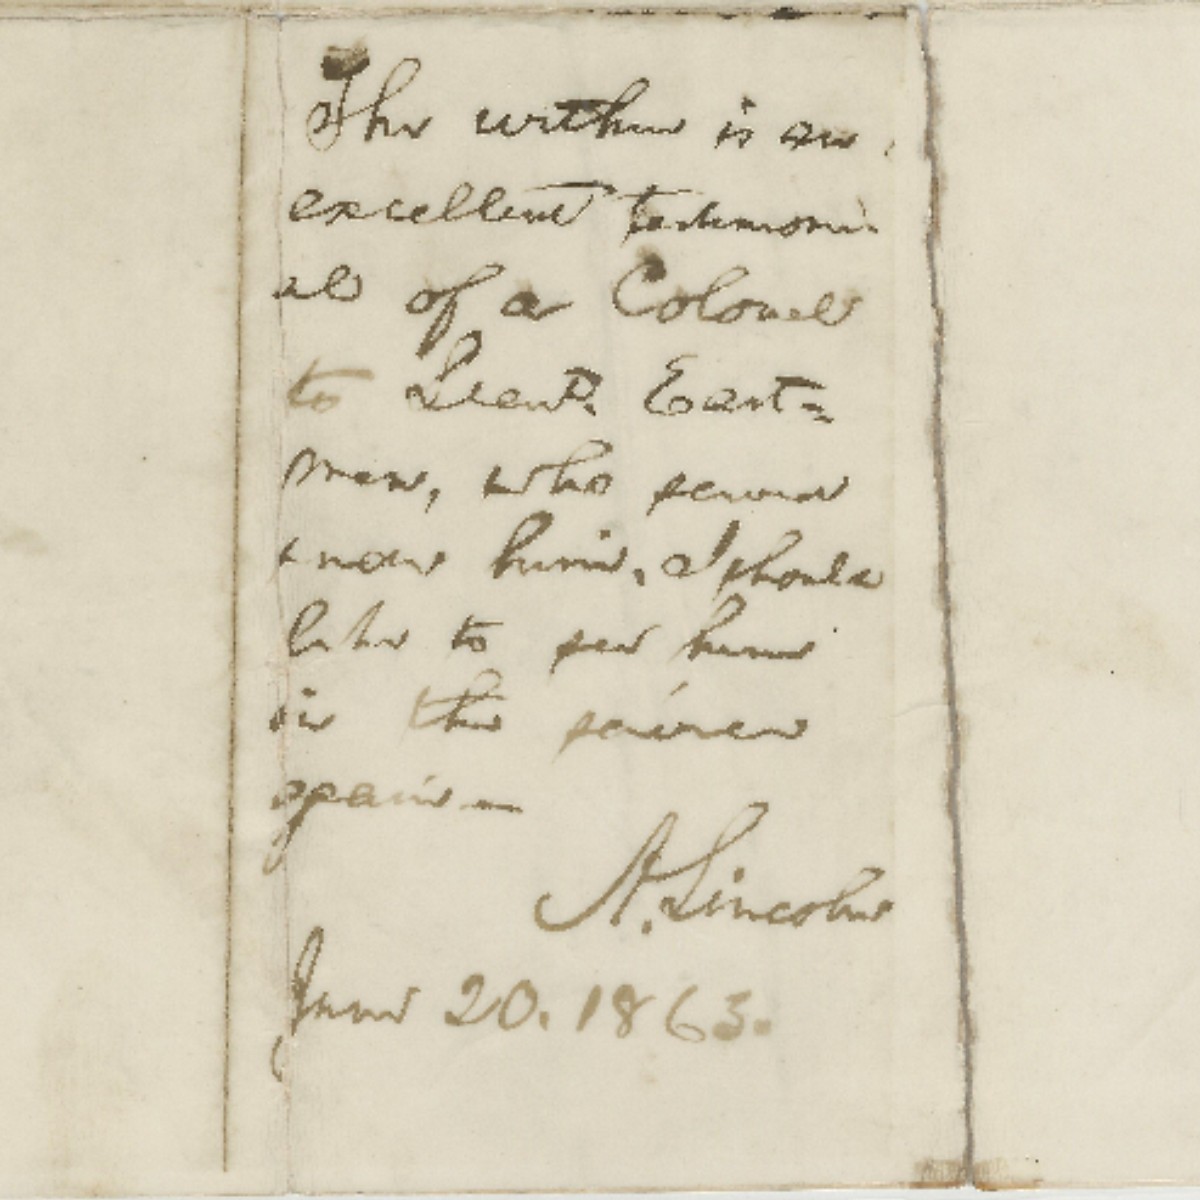 The within is an
excellent testimoni-
al of a Colonel
to Lieut. East=
man, who seems
know him. I should
like to see him
in the service
again—
A. Lincoln
June 20. 1863.